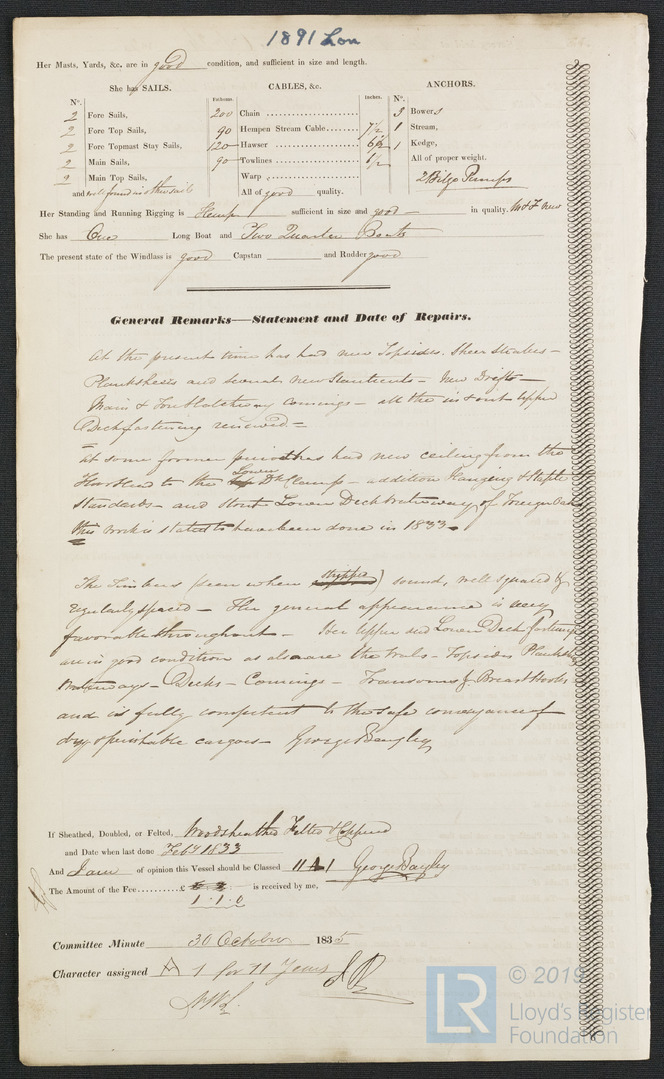 1891 Lon
Her Masts, Yards, &c. are in good condition, and sufficient in size and length.
She has SAILS.
CABLES, &c.
ANCHORS.
N°.
Fathoms.
Inches.
N°.
2 Fore Sails,
2 Fore Top Sails,
2 Fore Topmast Stay Sails,
2 Main Sails,
2 Main Top Sails,
and well found in other sails
200 Chain
90 Hempen Stream Cable 7½
120 Hawser 6½
90 Towlines
Warp
All of good quality.
3 Bowers
1 Stream,
1 Kedge,
All of proper weight.
2 Bilge Pumps
Her Standing and Running Rigging is Hemp sufficient in size and good in quality.
She has One Long Boat and Two Quarter Boats
The present state of the Windlass is good Capstan and Rudder good
General Remarks—Statement and Date of Repairs.
At the present time has had new Topsides. Sheer Strakes –
Planksheers and several new Stanchions – New Drifts –
Main & Fore Hatchway Comings – all the in & out Upper
Deck fastening renewed –
At some former period has had new ceiling from the
Floorhead to the Lower Dk Clamp – addition Hanging & Staple
Standards – and Stout Lower Deck Waterway of Foreign Oak
This work is stated to have been done in 1833
The Timbers (seen when stripped) sound, well squared &
regularly spaced – Her general appearance is very
favorable throughout – Her Upper and Lower Deck fastenings
are in good condition as also are the Wales – Topsides Planksheers
Waterways – Decks – Comings – Transoms & Breast Hooks
and is fully competent to the safe conveyance of
dry & perishable cargoes – George Bayley
If Sheathed, Doubled, or Felted, Woodsheathed Felted & Coppered
and Date when last done Feby 1833
And I am of opinion this Vessel should be Classed 11 A 1 George Bayley
The Amount of the Fee £ is received by me,
1 . 1 . 0
Committee Minute 30 October 1835
Character assigned A 1 for 11 Years
© 2019
LR
Lloyd's Register
Foundation